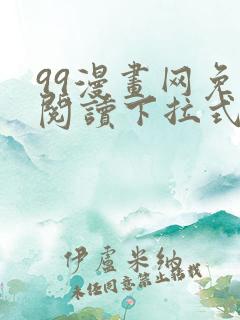 99漫畫网免
閱讀下拉式
伊盧米納
未经同意禁止转载